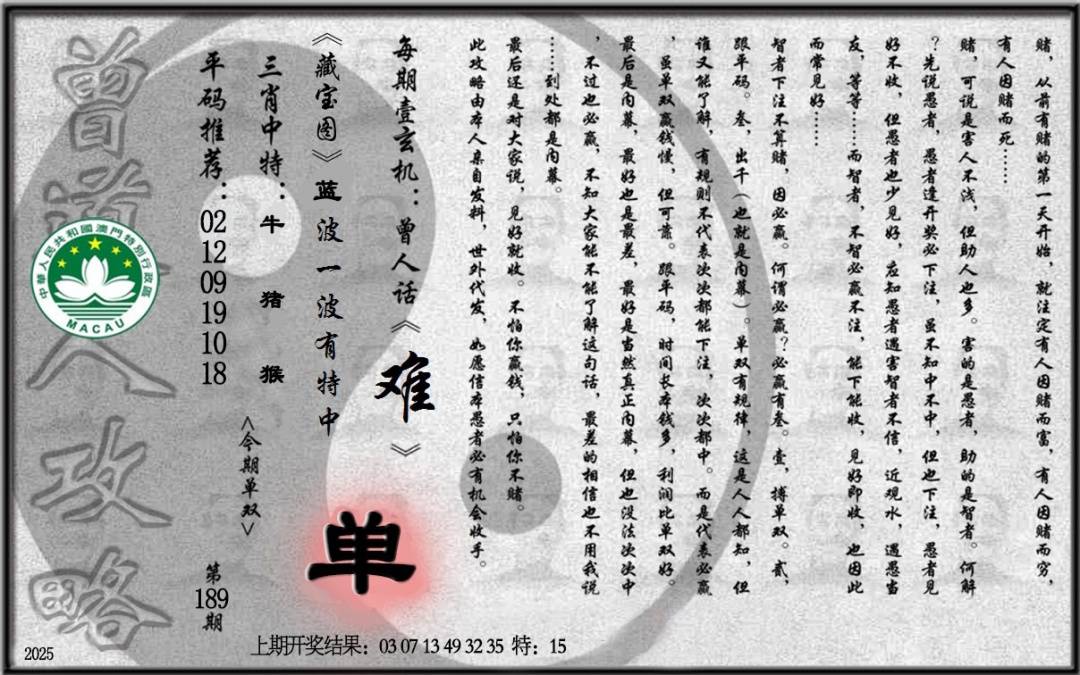 赌，从前有赌的第一天开始，就注定有人因赌而富，有人因赌而穷，
有人因赌而死……
赌，可说是害人不浅，但助人也多。害的是愚者，助的是智者。何解
？先说愚者，愚者逢开奖必下注，虽不知中不中，但也下注，愚者见
好不收，但愚者也少见好，应知愚者遇害智者不信，近观水，遇愚当
友，等等……而智者，不智必赢不注，能下能收，见好即收，也因此
而常见好……
智者下注不算赌，因必赢。何谓必赢？必赢有叁。壹，搏单双。贰，
跟平码。叁，出千（也就是内幕）。单双有规律，这是人人都知，但
谁又能了解，有规则不代表次次都能下注，次次都中。而是代表必赢
，虽单双赢钱慢，但可靠。跟平码，时间长本钱多，利润比单双好。
最后是内幕，最好也是最差，最好是当然真正内幕，但也没法次次中
，不过也必赢，不知大家能不能了解这句话，最差的相信也不用我说
……到处都是内幕。
最后还是对大家说，见好就收。不怕你赢钱，只怕你不赌。
此攻略由本人亲自发料，世外代发，如愿信本愚者必有机会收手。
每期壹玄机：曾人话《难》
《藏宝图》蓝波一波有特中
单
三肖中特：牛 猪 猴
<今期单双>
平码推荐：02 12 09 19 10 18
第189期
曾道人攻略
中華人民共和國澳門特別行政區
MACAU
2025
上期开奖结果：03 07 13 49 32 35 特：15